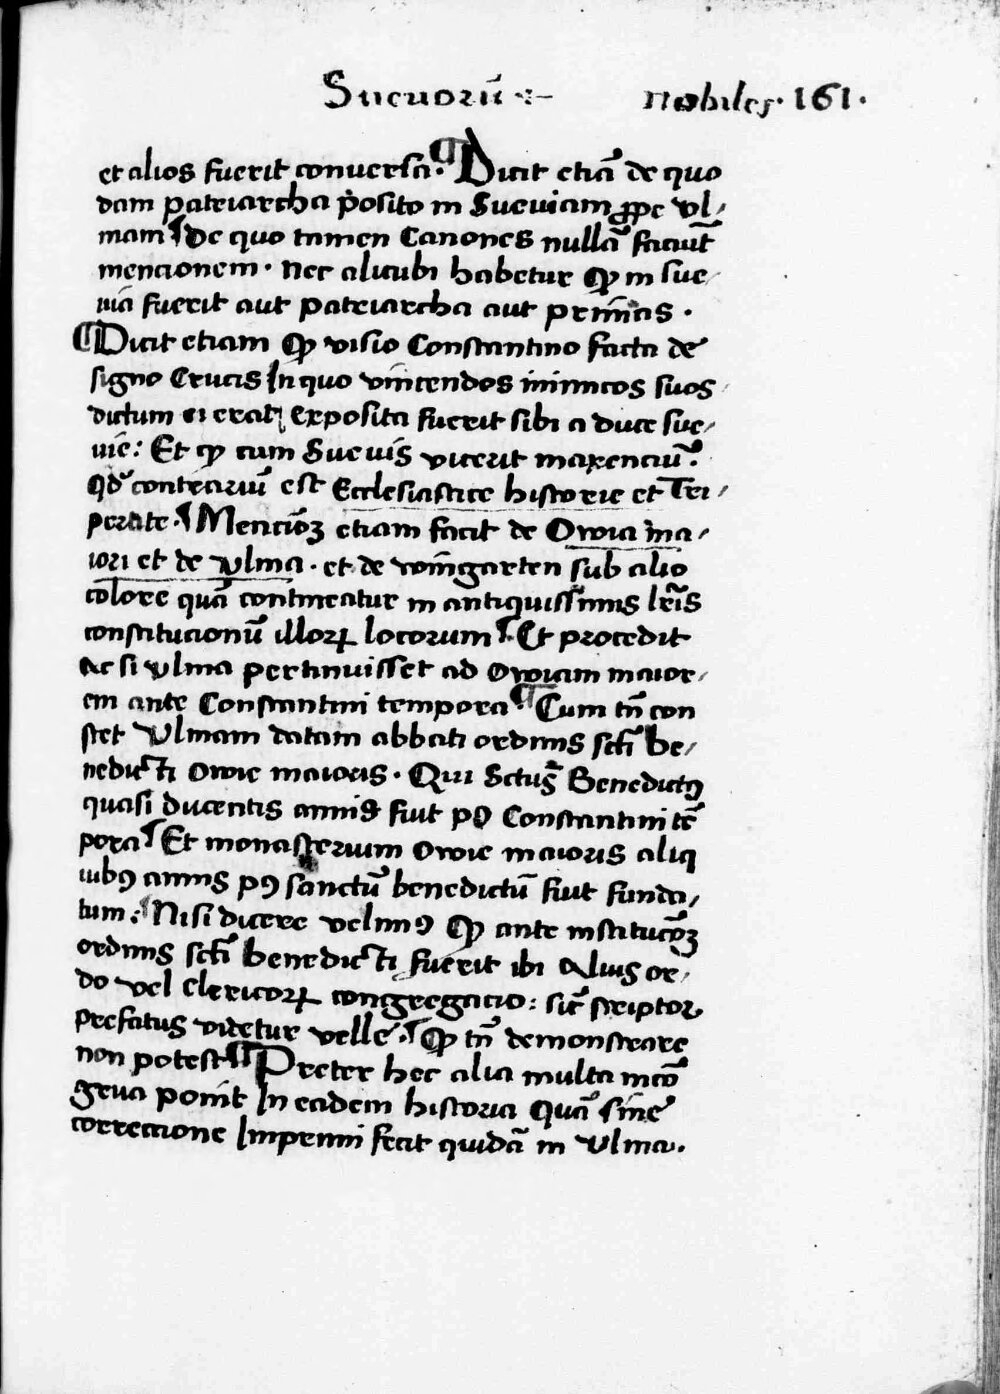 Sueuorū nobiles · 161 ·
et alios fuerit conuersa · ¶ Dicit etiā de quo
dam patriarcha p̄posito in Sueuiam prope vl/
mam ¶ De quo tamen Canones nullā faciūt
mencionem · nec alicubi habetur ꝙ in sue/
uia fuerit aut patriarcha aut primas ·
¶ Dicit etiam ꝙ visio Constantino facta de
signo Crucis In quo vincendos inimicos suos
dictum ei erat exposita fuerit sibi a duce sue/
uie : Et ꝙ cum Sueuis vicerit maxenciū .
qd' contrariū est Ecclesiastice historie et Tri/
pertite · ¶ Mencioēꝫ etiam facit de Owia ma/
iori et de vlma · et de wingarten sub alio
colore quā contineatur in antiquissimis lr̄is
constitucionū illoꝝ locorum ¶ Et procedit
ac si vlma pertinuisset ad Owiam maior/
em ante Constantini tempora ¶ Cum tn̄ con
stet vlmam datam abbati ordinis scti be/
nedicti Owie maioris · Qui Sctus Benedictꝰ
quasi ducentis annis fuit pꝰ Constantini tē
pora ¶ Et monasterium Owie maioris aliq
uibꝰ annis pꝰ sanctū benedictū fuit funda/
tum : ¶ Nisi dicere velimꝰ ꝙ ante institucōꝫ
ordinis scti benedicti fuerit ibi Alius or/
do vel clericoꝝ congregacio : sic̄ scriptor
prefatus videtur velle · ¶ ꝙ tn̄ demonstrare
non potest ¶ Preter hec alia multa incō
grua ponit In eadem historia Quā sine
correctione Imprimi fecit quidā in vlma ·